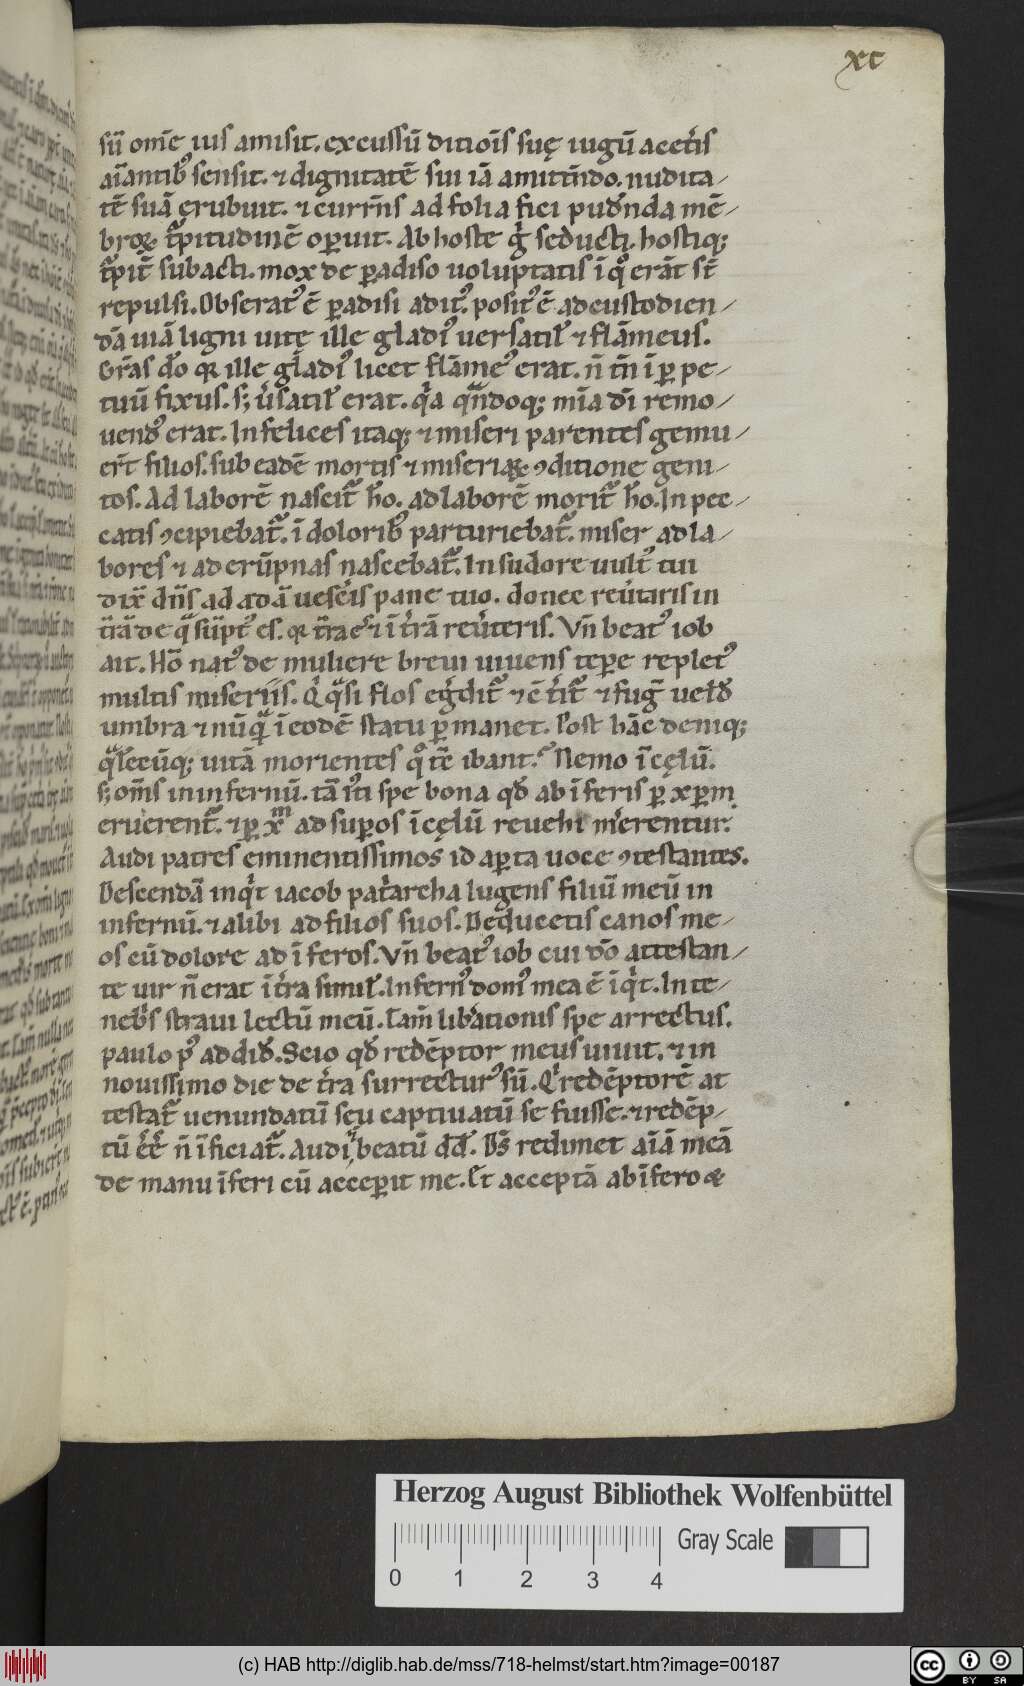 xc
sū om̄e ius amisit. excussū ditiōis suę iugū acc̄tis
aīantib; sensit. ⁊ dignitatē sui iā amittn̄do. nudita-
tē suā erubuit. ⁊ curr̄ns ad folia fici pudn̄da mē-
broꝝ t̾pitudinē oꝑuit. Ab hoste g̾ seducti. hostiq;
t̾pit̾ subacti. mox de ꝑadiso uoluptatis ī q° erāt st̄
repulsi. Obserat᾽ ē ꝑadisi adit᾽. posit᾽ ē ad custodien-
dā uiā ligni uitę ille gladi᾽ uersatił ⁊ flāmeus.
Gr̄as do qꝛ ille gladi᾽ licet flāme᾽ erat. n̄ tn̄ ī ꝑpe-
tuū fixus. s; ūsatił erat. q̾a qn̄doq; mīa dī remo-
uend᾽ erat. Infelices itaq; ⁊ miseri parentes genu-
er̄t filios. sub eadē mortis ⁊ miseriaꝝ ꝯditione geni-
tos. Ad laborē nascit̾ ho. ad laborē morit̾ ho. In pec-
catis ꝯcipiebat̾. ī dolorib; parturiebat̾. miser ad la-
bores ⁊ ad erūpnas nascebat̾. In sudore uult᾽ tui
dix̄ dn̄s ad adā uescīs pane tuo. donec reūtaris in
t̄rā de q̄ sūpt᾽ es. qꝛ t̄ra es ⁊ ī t̄rā reūteris. Vn̄ beat᾽ iob
ait. Hō nat᾽ de muliere breui uiuens tēpe replet᾽
multis miseriis. Q̾ q̄si flos eg̾dit̾ ⁊ ꝯt̾it̾ ⁊ fuḡ uelud
umbra ⁊ nūq̄ ī eodē statu ꝑmanet. Post hāc deniq;
q̄lēcūq; uitā morientes q° tē ibant? Nemo ī cęlū.
s; om̄s in infernū. tā īti spe bona qd ab īferis ꝑ xpm
eruerent̾. ⁊ ꝑ xm ad suꝑos ī cęlū reuehi m̾erentur.
Audi patres eminentissimos id aꝑta uoce ꝯtestantes.
Descendā inq̾t iacob pat̾archa lugens filiū meū in
infernū. ⁊ alibi ad filios suos. Deducetis canos me-
os cū dolore ad īferos. Vn̄ beat᾽ iob cui dō attestan-
te uir n̄ erat ī t̄ra simił. Infern᾽ dom᾽ mea ē īq̾t. In te-
neb̾s straui lectū meū. Tam̄ lib̾ationis spe arrectus.
paulo p᾽ addid. Scio qd redēptor meus uiuit. ⁊ in
nouissimo die de t̄ra surrectur᾽ sū. Q̾ redēptorē at
testat̾ uenundatū seu captiuatū se fuisse. ⁊ redēp-
tū ēē n̄ īficiat̾. Audi beatū dd. Ds̄ redimet aīā meā
de manu īferi cū acceꝑit me. Et acceptā ab īfero
Herzog August Bibliothek Wolfenbüttel
Gray Scale
0 1 2 3 4
(c) HAB http://diglib.hab.de/mss/718-helmst/start.htm?image=00187
cc BY SA